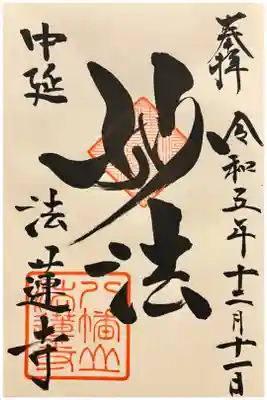 奉拝
令和五年十二月十一日
妙法
中延
法蓮寺
八幡山
法蓮寺